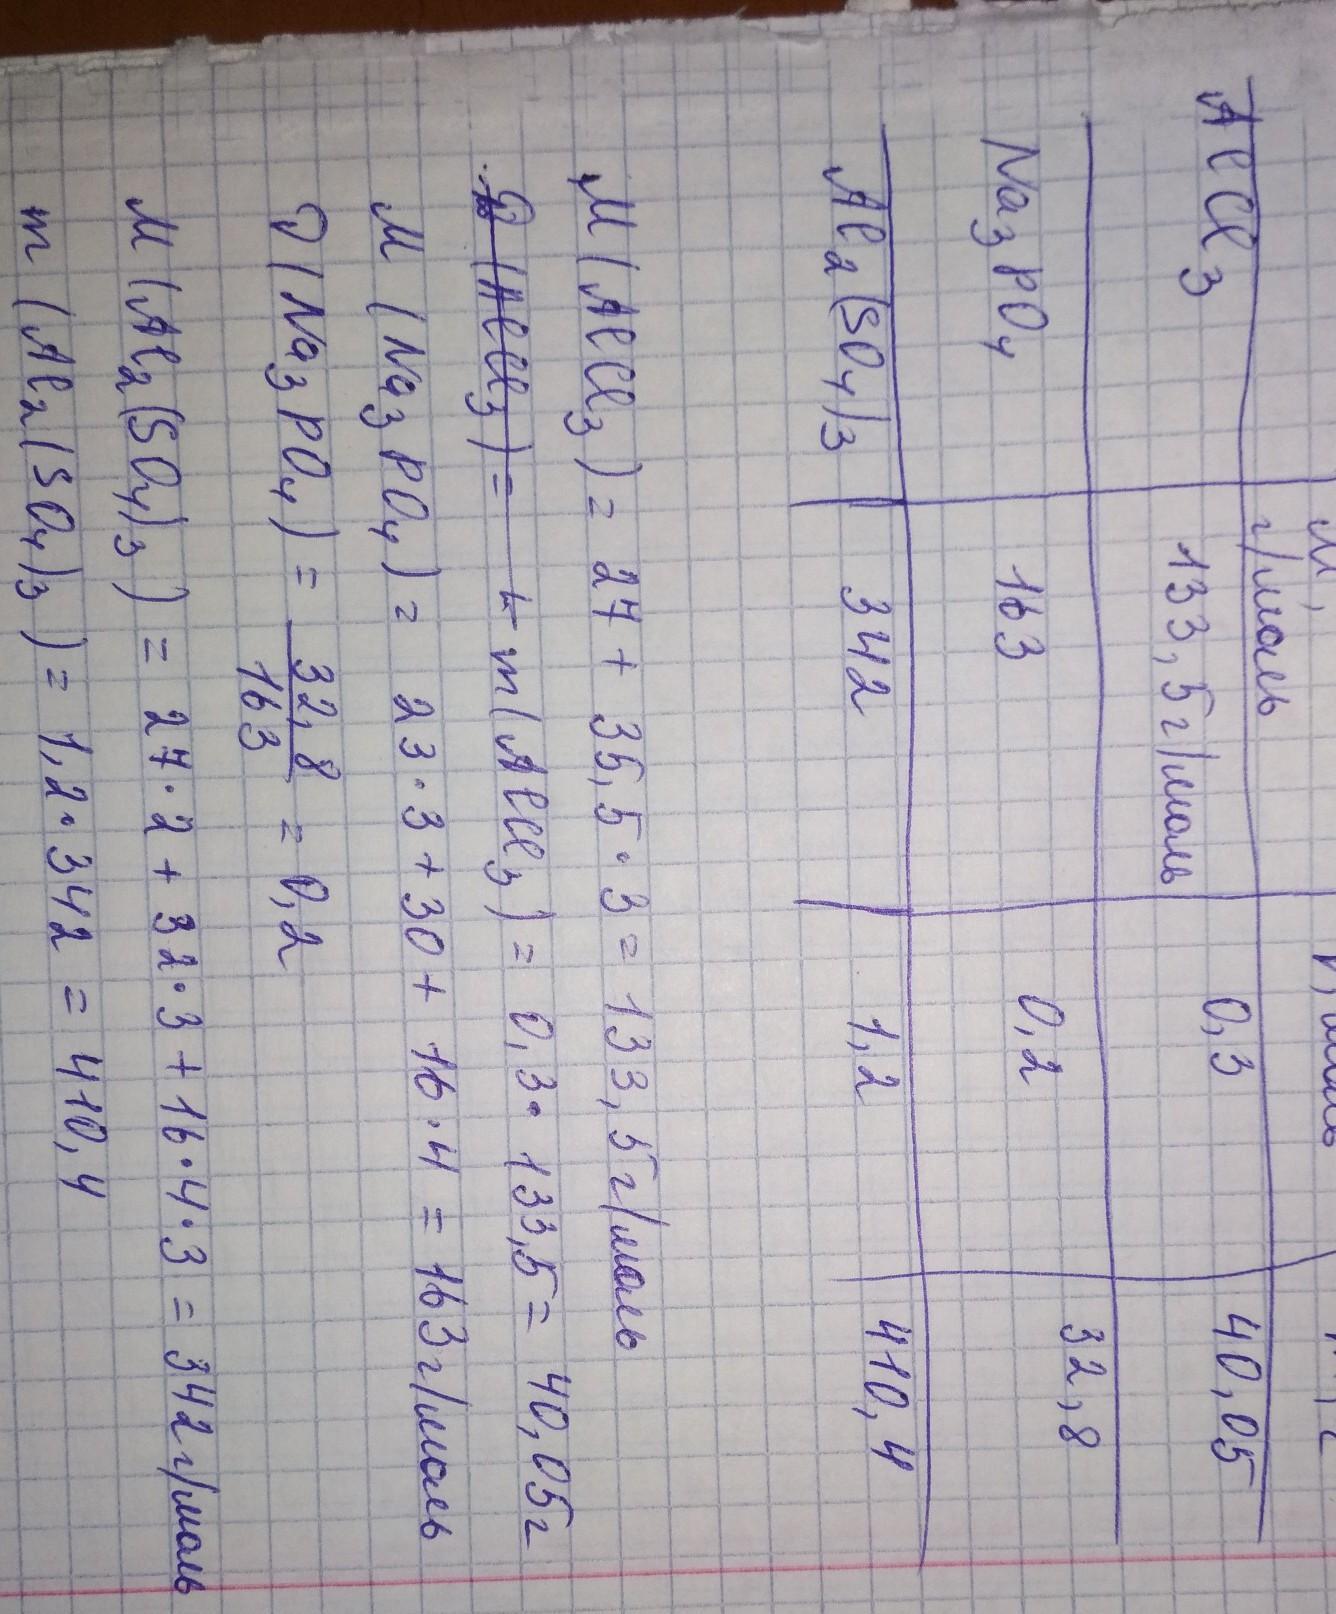 М,
г/моль
AlCl3 133,5 г/моль 0,3 40,05
Na3PO4 163 0,2 32,8
Al2(SO4)3 342 1,2 410,4
M(AlCl3) = 27 + 35,5·3 = 133,5 г/моль
m(AlCl3) = 0,3·133,5 = 40,05 г
M(Na3PO4) = 23·3 + 30 + 16·4 = 163 г/моль
ν(Na3PO4) = 32,8/163 = 0,2
M(Al2(SO4)3) = 27·2 + 32·3 + 16·4·3 = 342 г/моль
m(Al2(SO4)3) = 1,2·342 = 410,4